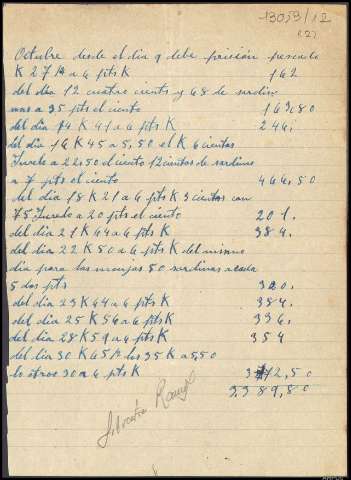 13053/12
(2)
Octubre desde el dia 9 debe prision pescado
K 27 A a 6 pts K 162
del dia 12 cuatro cientos y 68 de sardin
nas a 35 pts el ciento 163.80
del dia 14 K 41 a 6 pts K 246,
del dia 16 K 45 a 5,50 el K 6 cientos
Jurelo a 22,50 el ciento 12 cientos de sardinas
a 7 pts el ciento 466,50
del dia 18 K 21 a 6 pts K 3 cientos con
75 Jurelo a 20 pts el ciento 201,
del dia 21 K 64 a 6 pts K 384,
del dia 22 K 50 a 6 pts K del mismo
dia para las monjas 50 sardinas a cada
5 dos pts 320,
del dia 23 K 64 a 6 pts K 384,
del dia 25 K 56 a 6 pts K 336,
del dia 28 K 59 a 6 pts K 354
del dia 30 K 65 los 35 K a 5,50
lo otros 30 a 6 pts K 372,50
3389,80